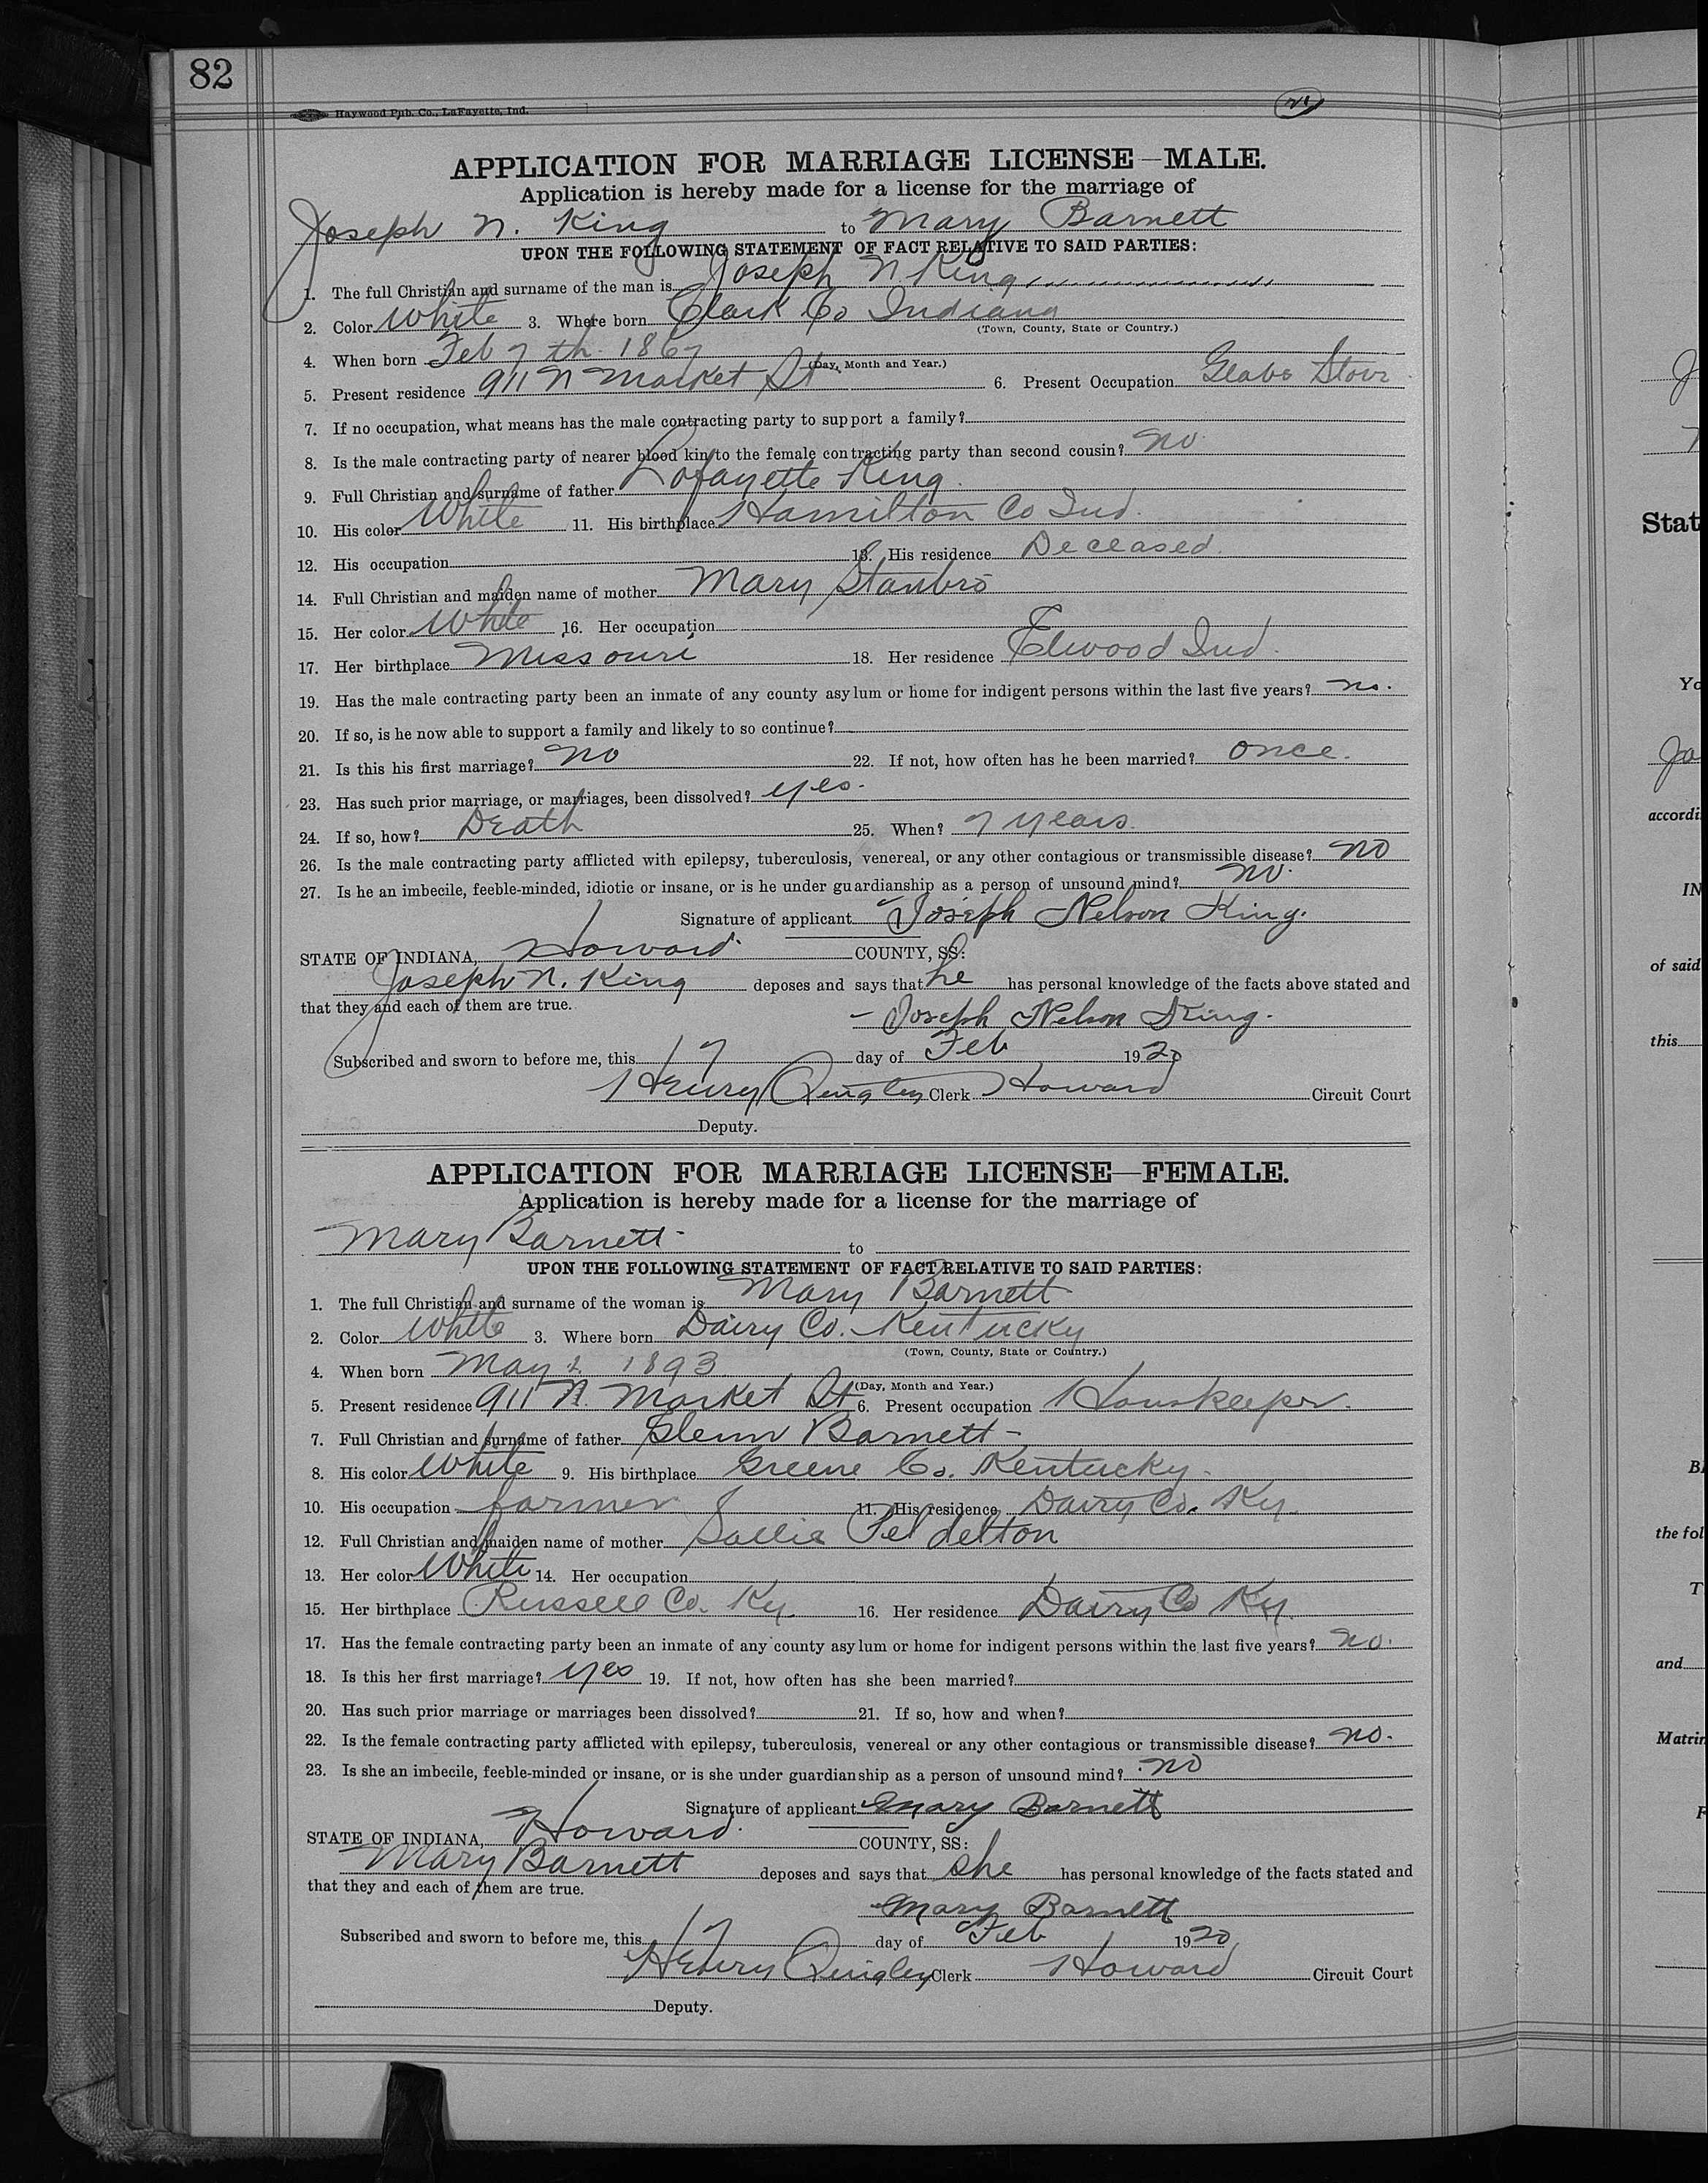 82
Haywood Pub. Co., LaFayette, Ind.
APPLICATION FOR MARRIAGE LICENSE—MALE.
Application is hereby made for a license for the marriage of
Joseph N. King to Mary Barnett
UPON THE FOLLOWING STATEMENT OF FACT RELATIVE TO SAID PARTIES:
1. The full Christian and surname of the man is Joseph N. King
2. Color White 3. Where born Clark Co Indiana
(Town, County, State or Country.)
4. When born Feb 7th 1867
(Day, Month and Year.)
5. Present residence 911 N Market St 6. Present Occupation
7. If no occupation, what means has the male contracting party to support a family?
8. Is the male contracting party of nearer blood kin to the female contracting party than second cousin? no
9. Full Christian and surname of father Lafayette King
10. His color White 11. His birthplace Hamilton Co Ind.
12. His occupation 13. His residence Deceased
14. Full Christian and maiden name of mother Mary Stanbro
15. Her color White 16. Her occupation
17. Her birthplace Missouri 18. Her residence Elwood Ind.
19. Has the male contracting party been an inmate of any county asylum or home for indigent persons within the last five years? no.
20. If so, is he now able to support a family and likely to so continue?
21. Is this his first marriage? no 22. If not, how often has he been married? once.
23. Has such prior marriage, or marriages, been dissolved? yes.
24. If so, how? Death 25. When? 7 years.
26. Is the male contracting party afflicted with epilepsy, tuberculosis, venereal, or any other contagious or transmissible disease? no
27. Is he an imbecile, feeble-minded, idiotic or insane, or is he under guardianship as a person of unsound mind? no.
Signature of applicant Joseph Nelson King.
STATE OF INDIANA, Howard COUNTY, SS:
Joseph N. King deposes and says that he has personal knowledge of the facts above stated and
that they and each of them are true.
Joseph Nelson King.
Subscribed and sworn to before me, this 17 day of Feb 1920
Henry Quigley Clerk Howard Circuit Court
Deputy.
APPLICATION FOR MARRIAGE LICENSE—FEMALE.
Application is hereby made for a license for the marriage of
Mary Barnett to
UPON THE FOLLOWING STATEMENT OF FACT RELATIVE TO SAID PARTIES:
1. The full Christian and surname of the woman is Mary Barnett
2. Color White 3. Where born Dairy Co. Kentucky
(Town, County, State or Country.)
4. When born May 2 1893
(Day, Month and Year.)
5. Present residence 911 N. Market St 6. Present occupation Houskeeper.
7. Full Christian and surname of father Glenn Barnett
8. His color White 9. His birthplace Greene Co. Kentucky.
10. His occupation farmer 11. His residence Dairy Co. Ky.
12. Full Christian and maiden name of mother Sallie Peldelton
13. Her color White 14. Her occupation
15. Her birthplace Russell Co. Ky. 16. Her residence Dairy Co Ky.
17. Has the female contracting party been an inmate of any county asylum or home for indigent persons within the last five years? no.
18. Is this her first marriage? yes 19. If not, how often has she been married?
20. Has such prior marriage or marriages been dissolved? 21. If so, how and when?
22. Is the female contracting party afflicted with epilepsy, tuberculosis, venereal or any other contagious or transmissible disease? no.
23. Is she an imbecile, feeble-minded or insane, or is she under guardianship as a person of unsound mind? no
Signature of applicant Mary Barnett
STATE OF INDIANA, Howard. COUNTY, SS:
Mary Barnett deposes and says that she has personal knowledge of the facts stated and
that they and each of them are true.
Mary Barnett
Subscribed and sworn to before me, this 17 day of Feb 1920
Henry Quigley Clerk Howard Circuit Court
Deputy.
Stat
Yo
accordi
IN
of said
this
the fol
and
Matrin